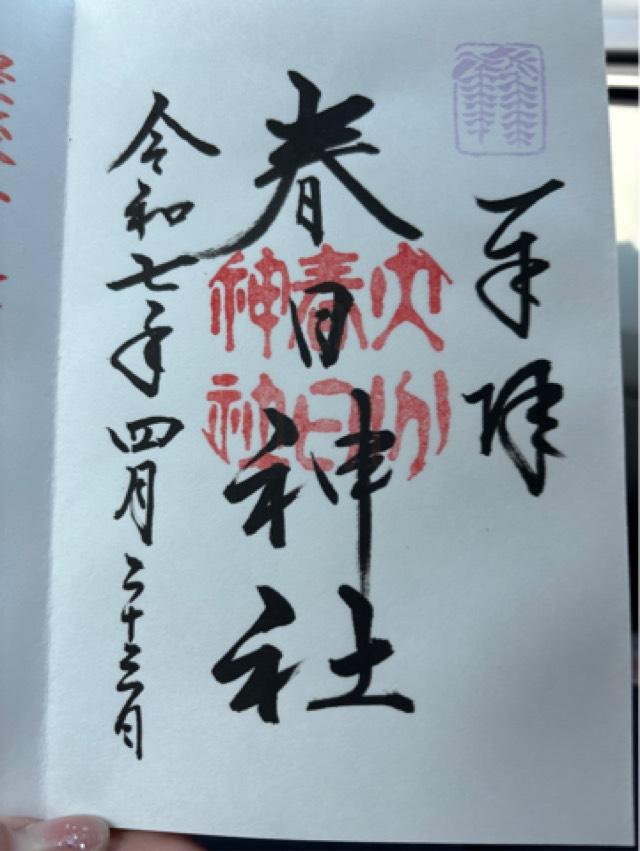 奉拝
春日神社
大分
春日
神社
令和七年四月二十三日